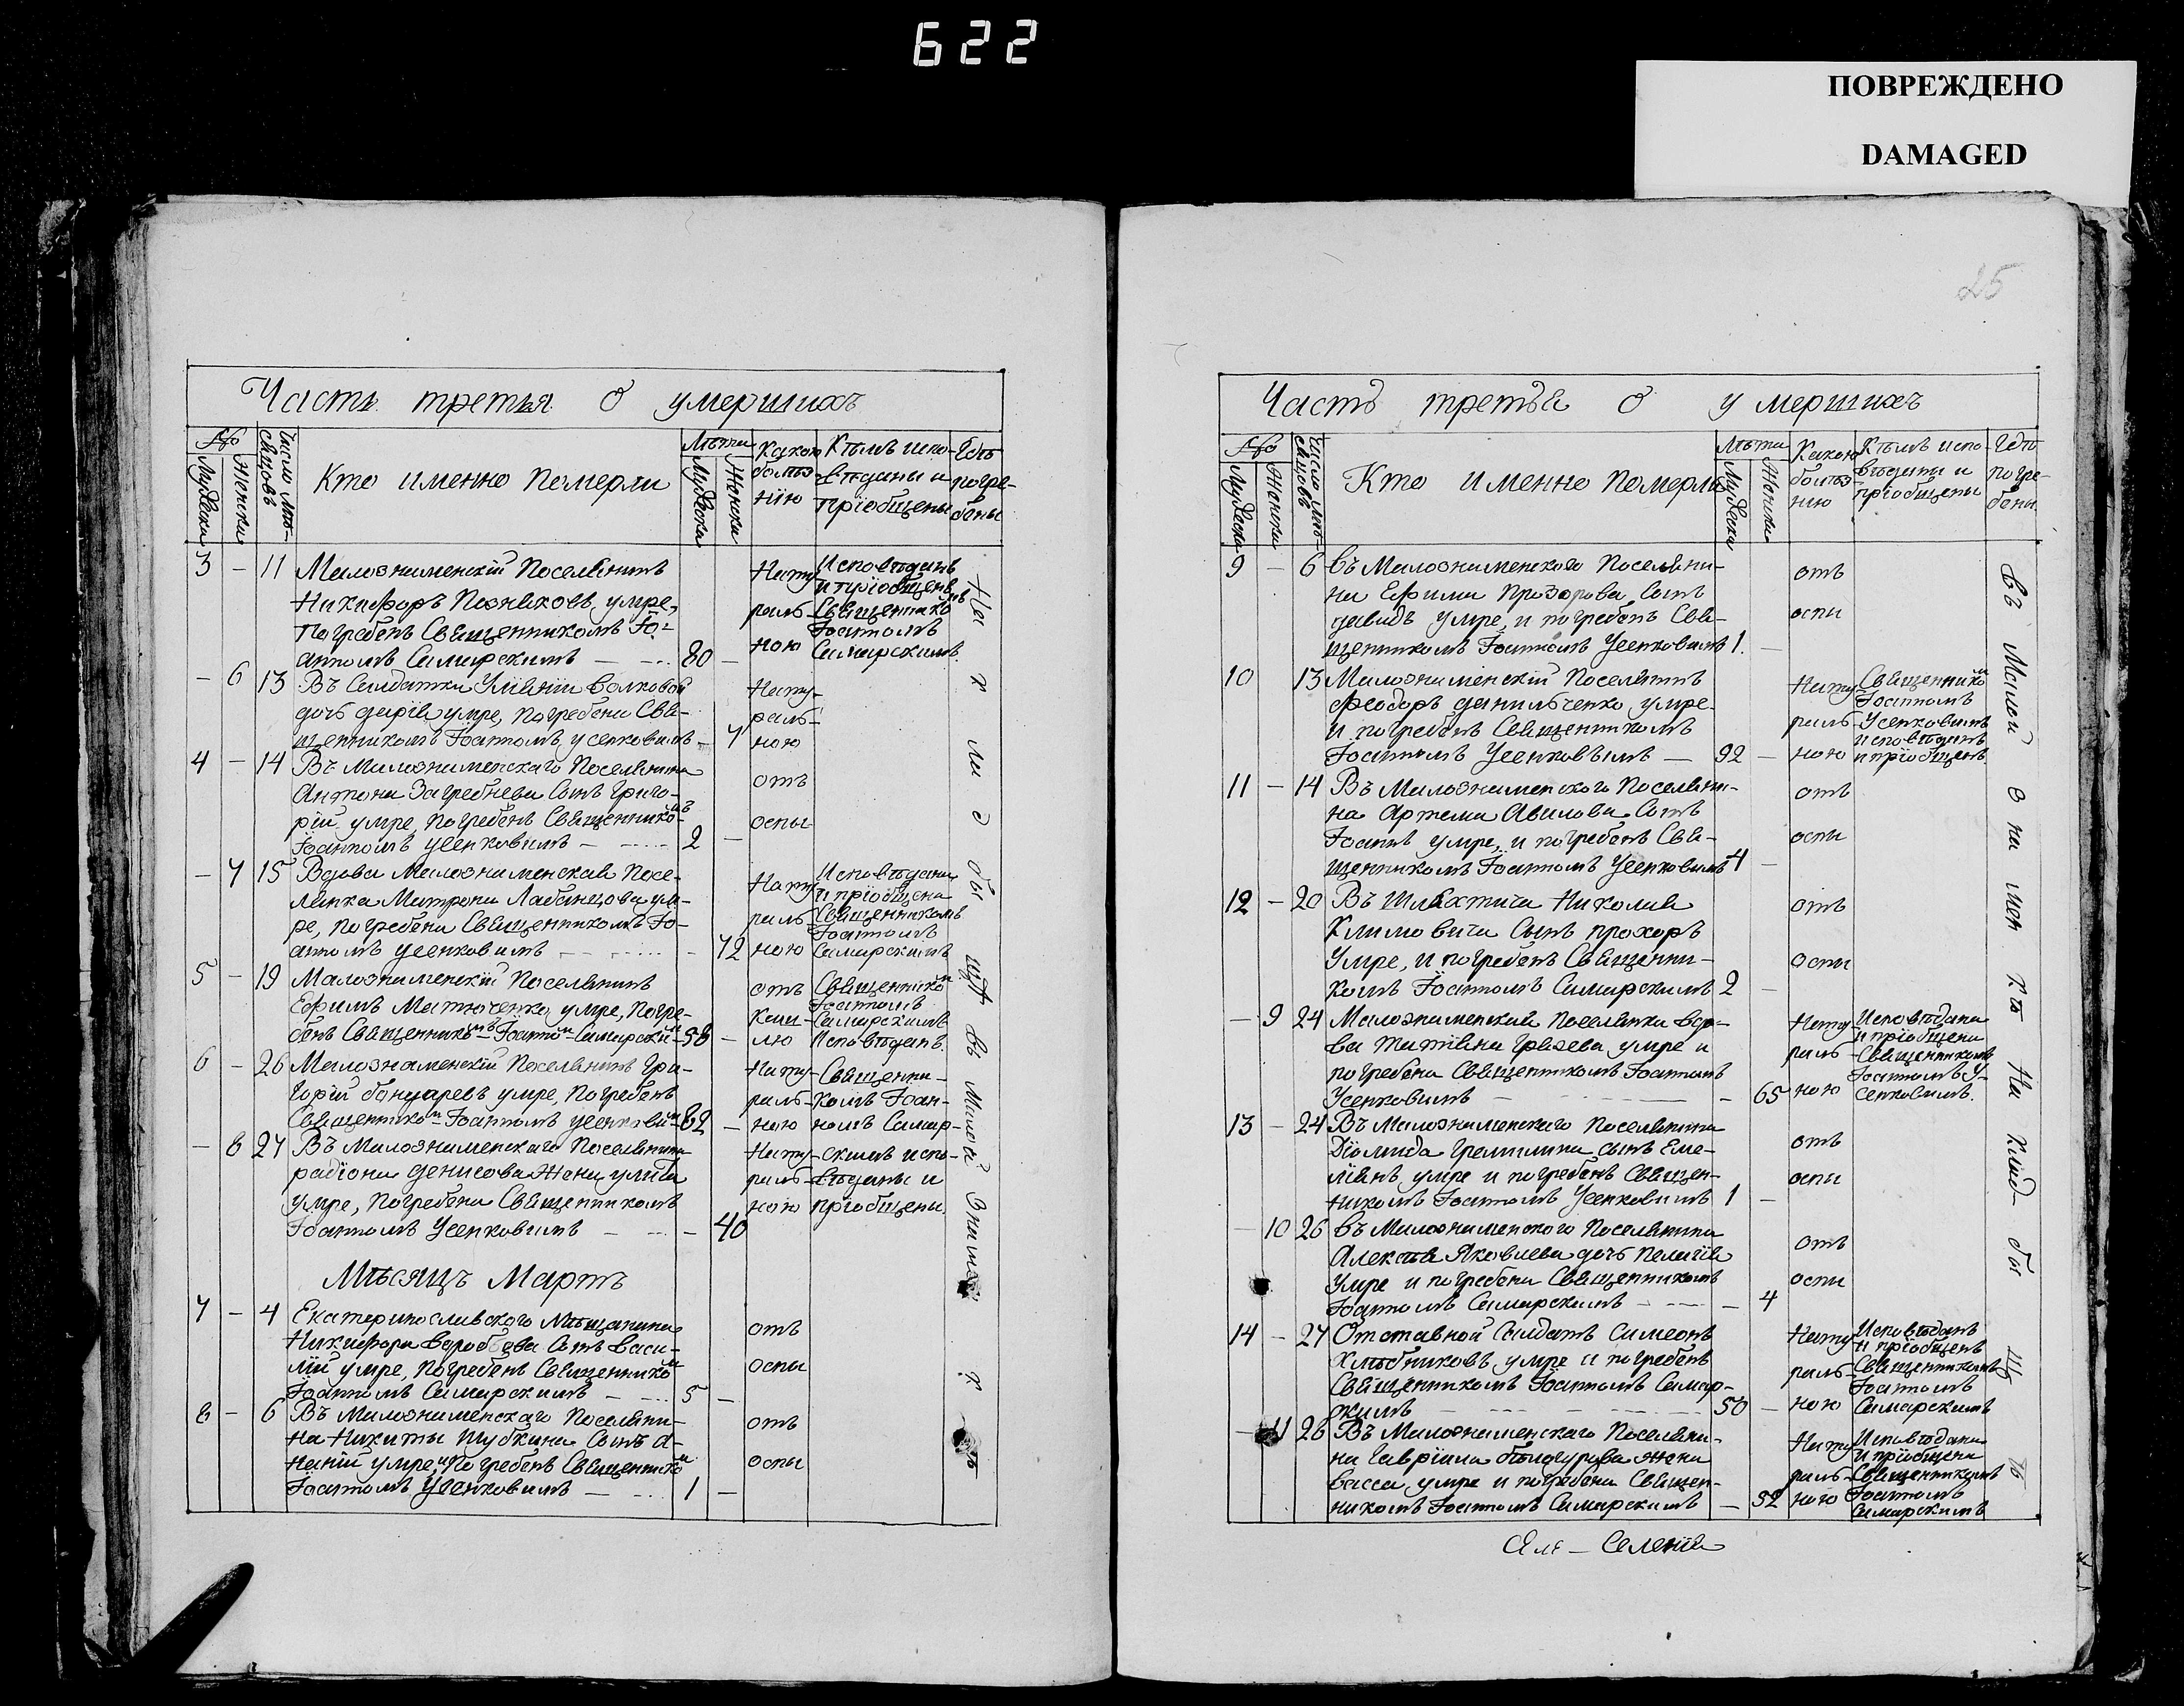 622
ПОВРЕЖДЕНО
DAMAGED
Часть третья О умершихъ
№
Мужеска
Женски
Число мѣ-
сяцовъ
Кто именно померли
Лѣта
Мужеска
Женска
Какою
болѣз-
нію
Кѣмъ испо-
вѣданы и
пріобщены
Гдѣ
погре-
бены
3 - 11 Малознаменскій Поселянинъ
Никифоръ Позняковъ, умре,
погребенъ Священникомъ Іо-
анномъ Самарскимъ - - 80 -
Нату-
раль-
ною
Исповѣданъ
и пріобщенъ
Священникомъ
Іоанномъ
Самарскимъ.
- 6 13 Въ Салдатки Уліяніи Волковой
дочь Дарія умре, погребена Свя-
щенникомъ Іоанномъ Усенковымъ - 7
Нату-
раль-
ною
4 - 14 Въ Малознаменскаго Поселянина
Антона Загребнева Сынъ Григо-
рій умре, погребенъ Священникомъ
Іоанномъ Усенковымъ - - 2 -
отъ
оспы
- 7 15 Вдова Малознаменская Посе-
лянка Матрона Лабанцова ум-
ре, погребена Священникомъ Іо-
анномъ Усенковымъ - - - 72
Нату-
раль-
ною
Исповѣдана
и пріобщена
Священникомъ
Іоанномъ
Самарскимъ
5 - 19 Малознаменскій Поселянинъ
Ефимъ Матюченко умре, погре-
бенъ Священникомъ Іоанномъ Самарскимъ 58 -
отъ
каш-
лю
Священникомъ
Іоанномъ
Самарскимъ
Исповѣданъ.
6 - 26 Малознаменскій Поселянинъ Гри-
горій бондаревъ умре, погребенъ
Священникомъ Іоанномъ Усенковымъ 82 -
Нату-
раль-
ною
Священни-
комъ Іоан-
номъ Самар-
- 8 27 Въ Малознаменскаго Поселянина
радіона Денисова Жена уліта
умре, погребена Священникомъ
Іоанномъ Усенковымъ - - - 40
Нату-
раль-
ною
скимъ испо-
вѣданы и
пріобщены.
Мѣсяцъ Мартъ
7 - 4 Екатеринославского Мѣщанина
Никифора Воробьева Сынъ Васи-
лій умре, погребенъ Священникомъ
Іоанномъ Самарскимъ - - 5 -
отъ
оспы
8 - 6 Въ Малознаменскаго Поселяни-
на Никиты Шубкина Сынъ А-
наній умре, и погребенъ Священникомъ
Іоанномъ Усенковымъ - - 1 -
отъ
оспы
На кладбищѣ въ Малой Знаменкѣ
25
Часть третья О умершихъ
№
Мужеска
Женски
Число мѣ-
сяцовъ
Кто именно померли
Лѣта
Мужеска
Женски
Какою
болѣз-
нію
Кѣмъ испо-
вѣданы и
пріобщены
Гдѣ
погре-
бены.
9 - 6 Въ Малознаменского Поселяни-
на Ефима Прозорова Сынъ
давидъ умре, и погребенъ Свя-
щенникомъ Іоанномъ Усенковымъ 1. -
отъ
оспы
10 13 Малознаменскій Поселянинъ
Феодоръ данильченко умре
и погребенъ Священникомъ
Іоанномъ Усенковымъ - 92 -
Нату-
раль-
ною
Священникомъ
Іоанномъ
Усенковымъ
исповѣданъ
и пріобщенъ
11 - 14 Въ Малознаменского Поселяни-
на Артема Авилова Сынъ
Іоаннъ умре, и погребенъ Свя-
щенникомъ Іоанномъ Усенковымъ 4 -
отъ
оспы
12 - 20 Въ Шляхтича Николая
Климовича Сынъ прохоръ
умре, и погребенъ Священни-
комъ Іоанномъ Самарскимъ 2 -
отъ
оспы
- 9 24 Малознаменская поселянка вдо-
ва татіана Грязева умре и
погребена Священникомъ Іоанномъ
Усенковымъ - - - 65
Нату-
раль-
ною
Исповѣдана
и пріобщена
Священникомъ
Іоанномъ У-
сенковымъ.
13 - 24 Въ Малознаменского Поселянина
Діомида Грамилина сынъ Еме-
ліянъ умре и погребенъ Священ-
никомъ Іоанномъ Усенковымъ 1 -
отъ
оспы
- 10 26 Въ Малознаменского Поселянина
Алексѣя Яковлева дочь пелагія
умре и погребена Священникомъ
Іоанномъ Самарскимъ - - - 4
отъ
оспы
14 - 27 Отставной Салдатъ Симеонъ
Хлѣбниковъ умре и погребенъ
Священникомъ Іоанномъ Самар-
скимъ - - - 50 -
Нату-
раль-
ною
Исповѣданъ
и пріобщенъ
Священникомъ
Іоанномъ
Самарскимъ
- 11 28 Въ Малознаменскаго Поселяни-
на Гавріила Жена
васса умре и погребена Священ-
никомъ Іоанномъ Самарскимъ - 52
Нату-
раль-
ною
Исповѣдана
и пріобщена
Священникомъ
Іоанномъ
Самарскимъ
въ Малой Знаменкѣ На кладбищѣ
Селенія